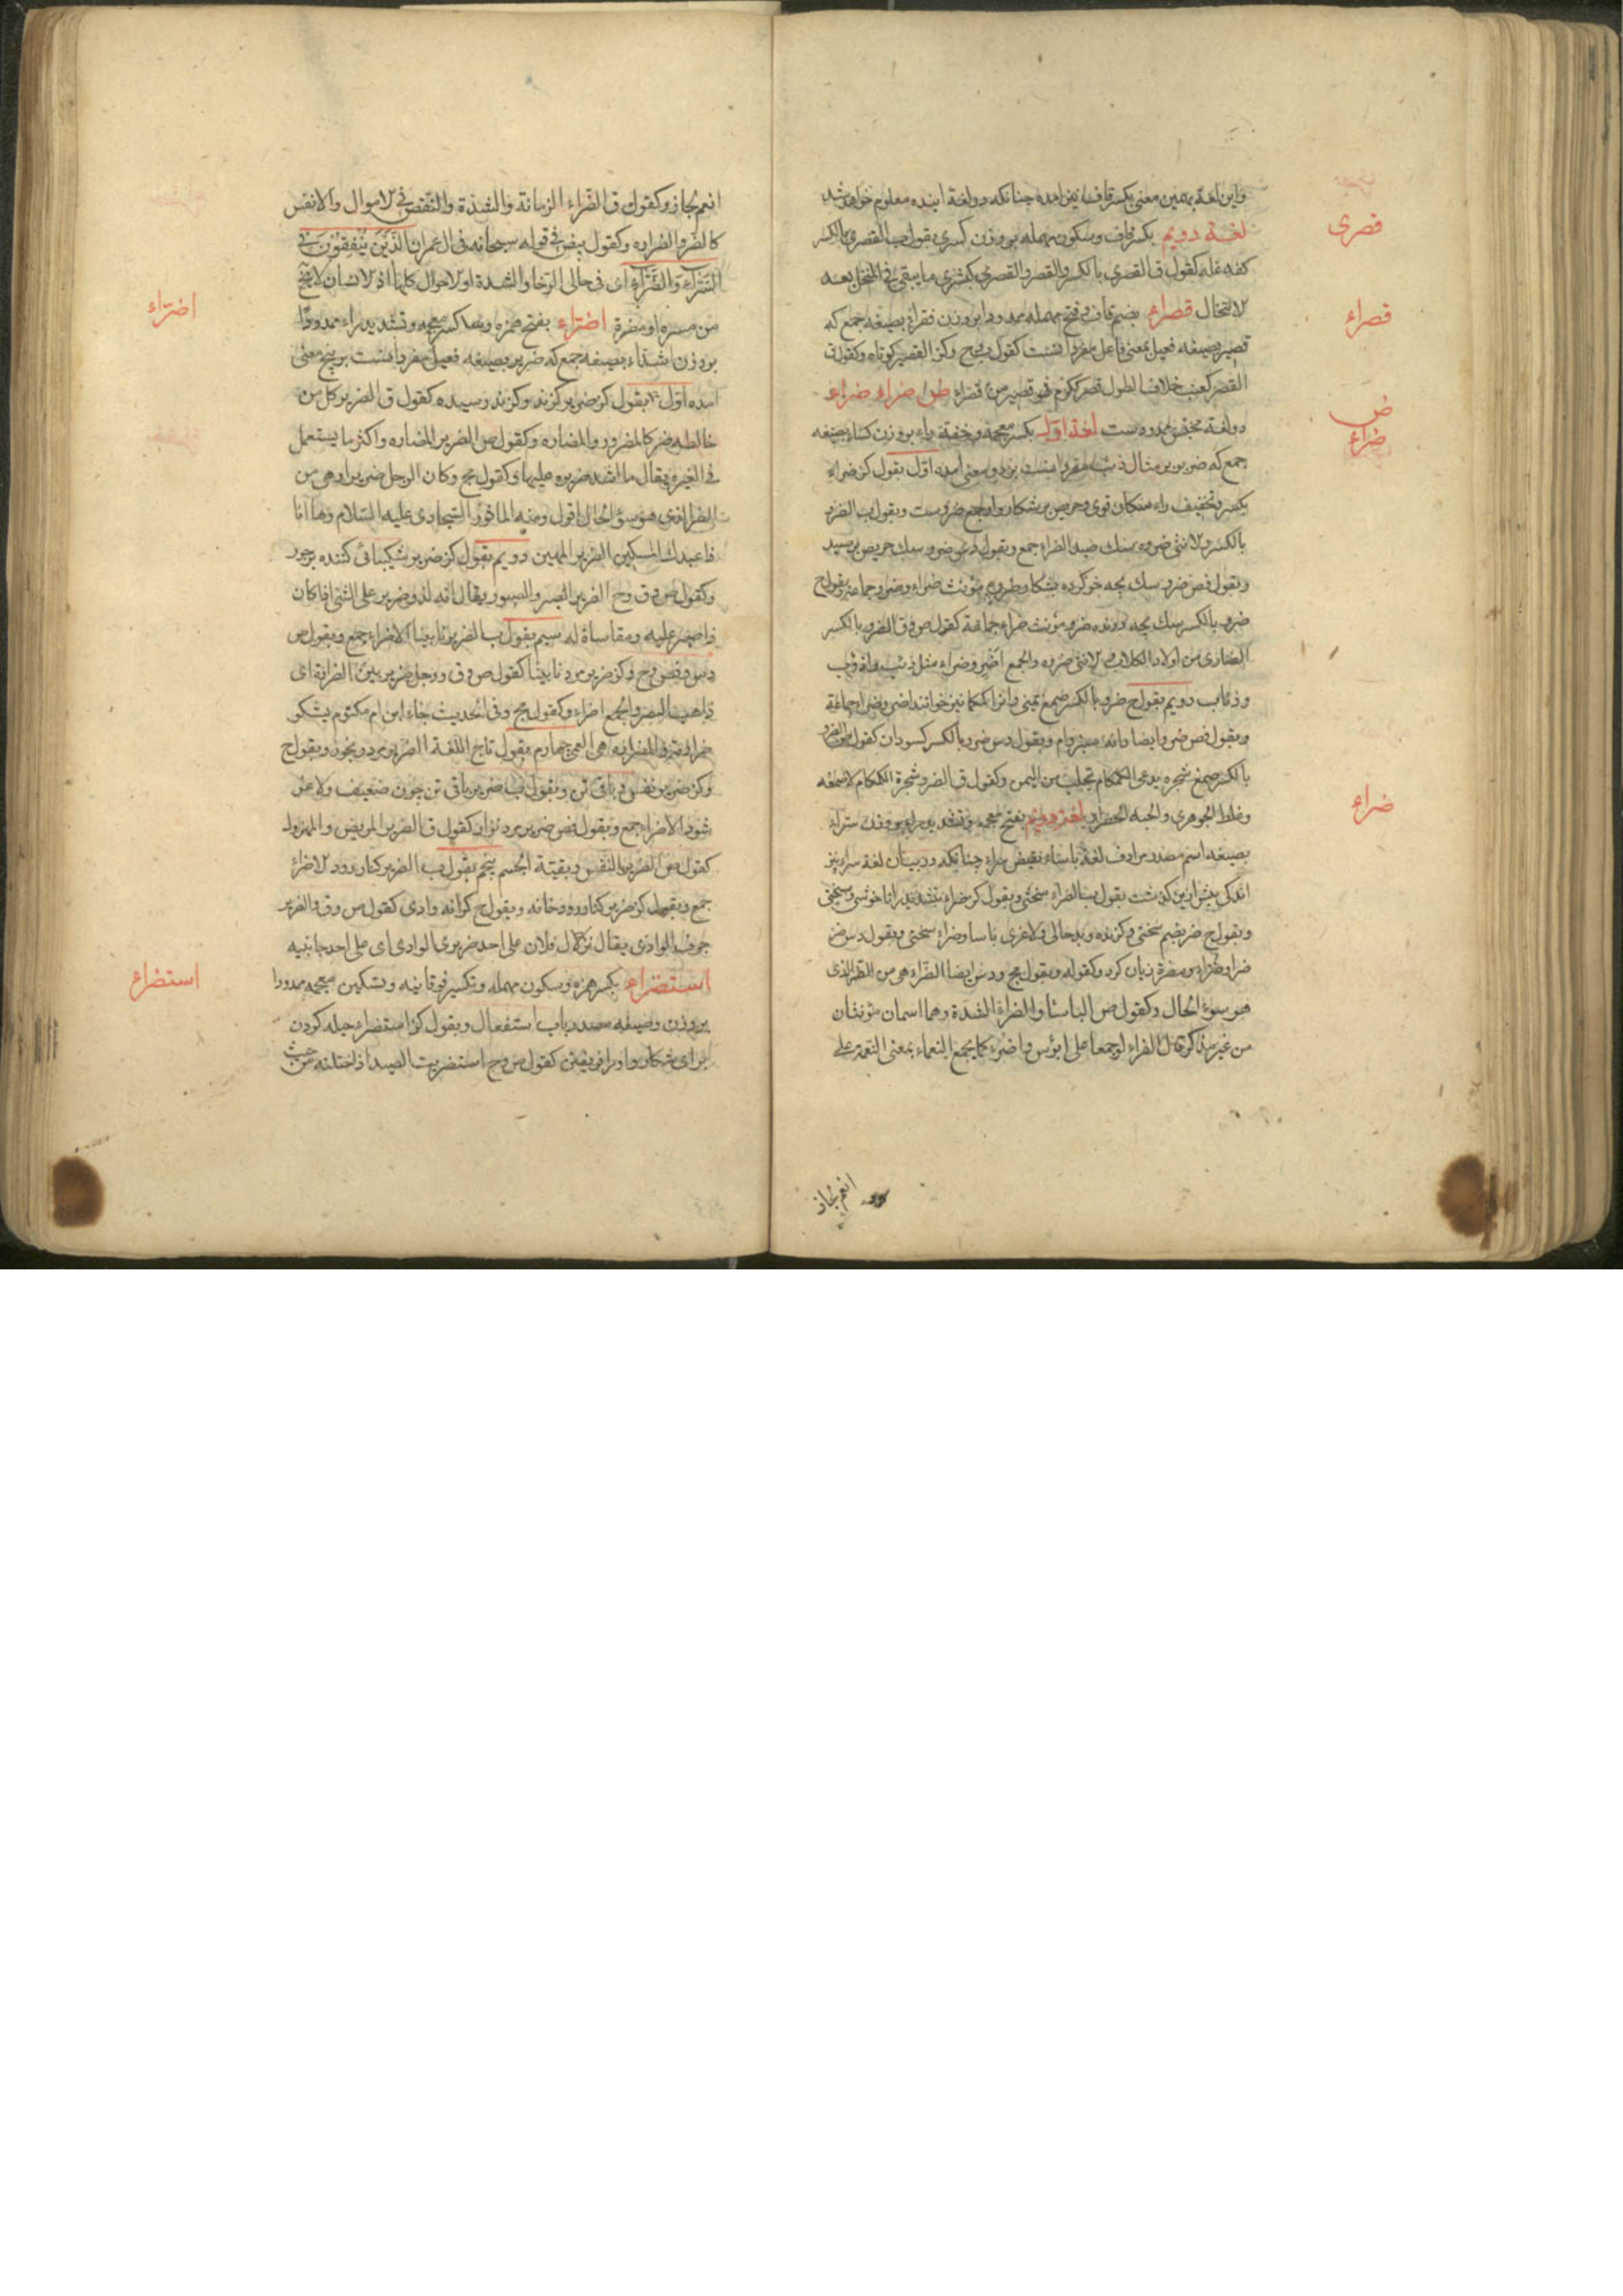 واین لغة بهمین معنی بکسر قاف نیز امده چنانکه در لغة اینده معلوم خواهد شد
قصری
لغة دویم بکسر قاف و سکون مهمله بر وزن کسری بقول صب القصری بالکسر
کفه غله کقول ق القصری بالکسر والقصر والقصری کبشری ما یبقی فی المنخل بعد
قصراء
لانتخال قصراء بضم قاف و فتح مهمله ممدودا بر وزن فقراء بصیغه جمع که
قصیر بصیغه فعیل بمعنی فاعل مفرد انست کقول و کز القصیر کوتاه وکقول ق
القصر کعنب خلاف الطول قصر ککرم فهو قصیر من قصراء ضراء ضراء
ض
ضراء
دو لغة مخفف ممدوده ست لغة اوّل بکسر معجمه و خفیة راء بر وزن کساء بصیغه
جمع که ضرو بر مثال ذئب مفرد انست بر دو معنی امده اوّل بقول کز ضراء
بکسر و تخفیف راء سکان قوی و حریص بر شکار واو جمع ضروست وبقول صب الضرو
بالکسر ولانثی ضروه سک صید الضراء جمع وبقول دس ضرو سک حریص بر صید
وبقول فص ضرو سک بچه خو کرده بشکار
ضرو بالکسر سک بچه درنده ضروه مؤنث ضراء جماعة کقول ص و ق الضرو بالکسر
الضاری من اولاد الکلاب لانثی ضروه والجمع اضر و ضراء مثل ذئب واذؤب
وذئاب دویم بقول ح ضرو بالکسر صمغ یمنی وانرا کمکام نیز خوانند
وبقول فص ضرو ایضا دانه سبز وام وبقول دس ضرو بالکسر کسودان کقول ص الضرو
بالکسر صمغ شجره یدعی الکمکام تجلب من الیمن وکقول ق الضرو شجرة الکمکام لا صمغه
ضراء
وغلط الجوهری والحبه الخضراء لغة دویم بفتح معجمه و تشدید راء بر وزن سرّاء
بصیغه اسم مصدر مرادف لغة باساء نقیض سراء چنانکه در بیان لغة سراء نیز
اندکی پیش ازین کذشت بقول صب الضراء سختی وبقول کز ضراء بتشدید را ناخوشی و سختی
وبقول ح ضر بضم سختی و کزنده و بدحالی ولاغری باسا وضراء سختی وبقول دس ضر
ضرا وضرّاء ومضرة زیان کرد وکقوله وبقول مج و دس ایضا الضرّاء هی من الضر الذی
هو سوء الحال وکقول ص الباساء والضراء الشدة وهما اسمان مؤنثان
من غیر تذکیر قال الفراء لو جمعا علی ابؤس واضرّ کما یجمع النعماء بمعنی النعمة علی
انعم لجاز
انعم لجاز وکقول ق الضراء الزمانة والشدة والنقص فی لاموال والانفس
کالضر والضراره وکقول بیض فی قوله سبحانه فی ال عمران الذین ینفقون فی
السّرّاء والضّرّاء ای فی حالی الرخا والشدة او لاحوال کلها اذ لانسان لا یخلو
اضراء
من مسره او مضرة اضراء بفتح همزه وبعد کسر معجمه و تشدید راء ممدودا
بر وزن اشداء بصیغه جمع که ضریر بصیغه فعیل مفرد انست بر پنج معنی
امده اوّل بقول کز ضریر کزند و کزند رسیده کقول ق الضریر کل من
خالطه ضر کالمضرور والمضاره وکقول ص الضریر المضاره واکثر ما یستعمل
فی الغیره یقال ما اشد ضریره علیها وکقول مج وکان الرجل ضریرا وهی من
الضر الذی هو سوء الحال اقول ومنه الماثور السجادی علیه السّلام وها انا ذا
عبدک المسکین الضریر المهین دویم بقول کز ضریر شکیبائی کننده بر جور
وکقول ص و ق و ح الضریر الصبر والصبور یقال انه لذو ضریر علی الشئ اذا کان
ذا صبر علیه ومقاساة له سیم بقول صب الضریر نابینا الاضراء جمع وبقول ص
دس و فص و ح و کز ضریر مرد نابینا کقول ص و ق و رجل ضریر بین الضرارة ای
ذاهب البصر والجمع اضراء وکقول مج وفی الحدیث جاء ابن ام مکتوم یشکو
ضرارته الضراره هی العمی چهارم بقول تاج اللغة الضریر مرد رنجور وبقول ح
و کز ضریر نفس و باقی تن وبقول صب ضریر باقی تن چون ضعیف ولاغر
شود الاضراء جمع وبقول فص ضریر مرد نزار کقول ق الضریر المریض والمهزول
کقول ص الضریر النفس وبقیة الجسم پنجم بقول صب الضریر کنار رود لاضراء
جمع وبقول کز ضریر کنار رودخانه وبقول ح کرانه وادی کقول ص و ق والضریر
حرف الوادی یقال نزل فلان علی احد ضریری الوادی ای علی احد جانبیه
استضراء
استضراء بکسر همزه و سکون مهمله و بکسر فوقانیه و تسکین معجمه ممدودا
بر وزن وصیغه مصدر باب استفعال وبقول کز استضراء حیله کردن
برای شکار واو را فریفتن کقول ص و ح استضریت للصید اذا ختلته من حیث